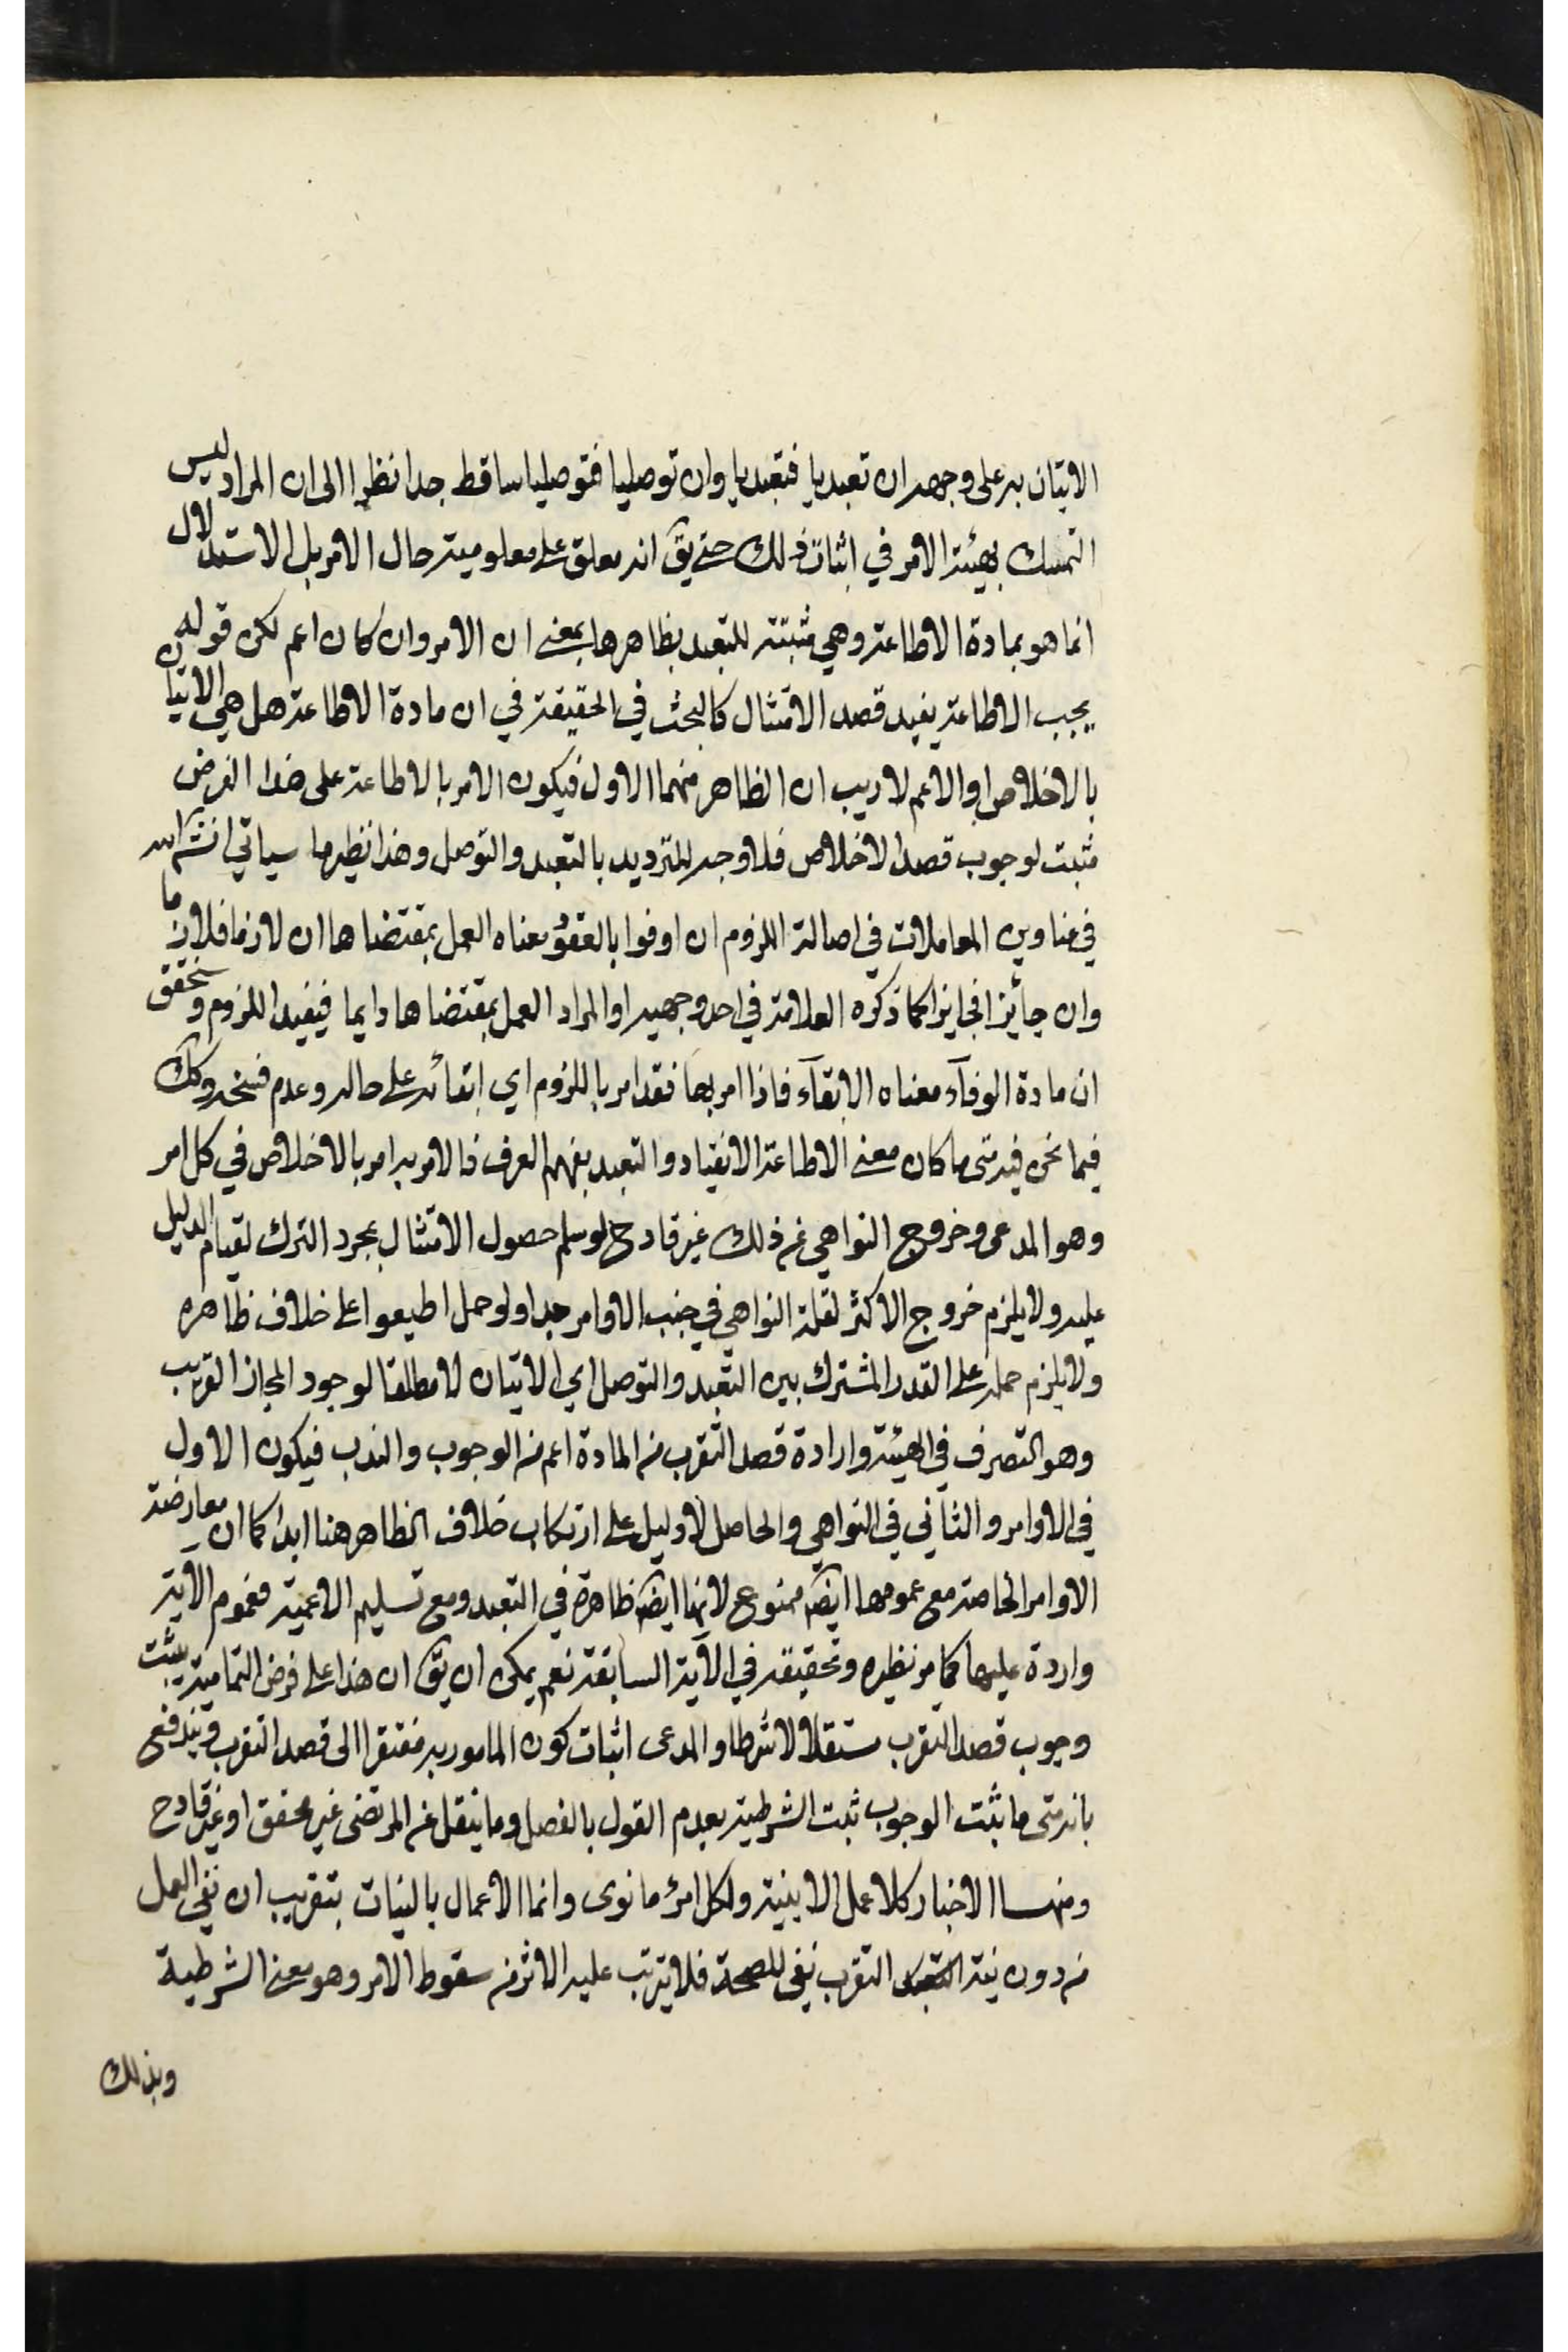 الاتيان به على وجهه ان تعبديا فتعبديا وان توصليا فتوصليا ساقط جدا نظرا الى ان المراد ليس
التمسك بهيئة الامر في اثبات ذلك حتى يق انه معلق على معلومية حال الامر بل الاستدلال
انما هو بمادة الاطاعة وهي مثبتة للتعبد بظاهرها بمعنى ان الامر وان كان اعم لكن قوله
يجب الاطاعة يفيد قصد الامتثال كالبحث في الحقيقة في ان مادة الاطاعة هل هي الاتيان
بالاخلاص او الاعم لا ريب ان الظاهر منهما الاول فيكون الامر بالاطاعة على هذا الفرض
مثبت لوجوب قصد الاخلاص فلا وجه للترديد بالتعبد والتوصل وهذا نظير ما سياتي انش الله
في عناوين المعاملات في اصالة اللزوم ان اوفوا بالعقود معناه العمل بمقتضاها ان لازما فلازما
وان جائزا فجايزا كما ذكره العلامة في احد وجهيه او المراد العمل بمقتضاها دايما فيفيد اللزوم وسنحقق
ان مادة الوفآء معناه الابقآء فاذا امر بها فقد امر باللزوم اي ابقائه على حاله وعدم فسخه وكك
فيما نحن فيه متى ما كان معنى الاطاعة الانقياد والتعبد بفهم العرف فالامر به امر بالاخلاص في كل امر
وهو المدعى وخروج النواهي عن ذلك غير قادح لو سلم حصول الامتثال بمجرد الترك لقيام الدليل
عليه ولا يلزم خروج الاكثر لقلة النواهي في جنب الاوامر جدا ولو حمل اطيعوا على خلاف ظاهره
ولا يلزم حمله على القدر المشترك بين التعبد والتوصل اي الاتيان مطلقا لوجود المجاز القريب
وهو التصرف في الهيئة وارادة قصد التقرب من المادة اعم من الوجوب والندب فيكون الاول
في الاوامر والثاني في النواهي والحاصل لا دليل على ارتكاب خلاف الظاهر هنا ابدا كما ان معارضة
الاوامر الخاصة مع عمومها ايض ممنوع لانها ايض ظاهرة في التعبد ومع تسليم الاعمية فعموم الاية
واردة عليها كما مر نظيره وتحقيقه في الآية السابقة نعم يمكن ان يق ان هذا على فرض التمامية يثبت
وجوب قصد التقرب مستقلا لا شرطا والمدعى اثبات كون المامور به مفتقرا الى قصد التقرب ويندفع
بانه متى ما ثبت الوجوب ثبت الشرطية بعدم القول بالفصل وما ينقل عن المرتضى غير محقق او غير قادح
ومنها الاخبار كلا عمل الا بنية ولكل امرئ ما نوى وانما الاعمال بالنيات بتقريب ان نفي العمل
من دون نية التقرب نفي للصحة فلا يترتب عليه الاثر من سقوط الامر وهو معنى الشرطية
وبذلك